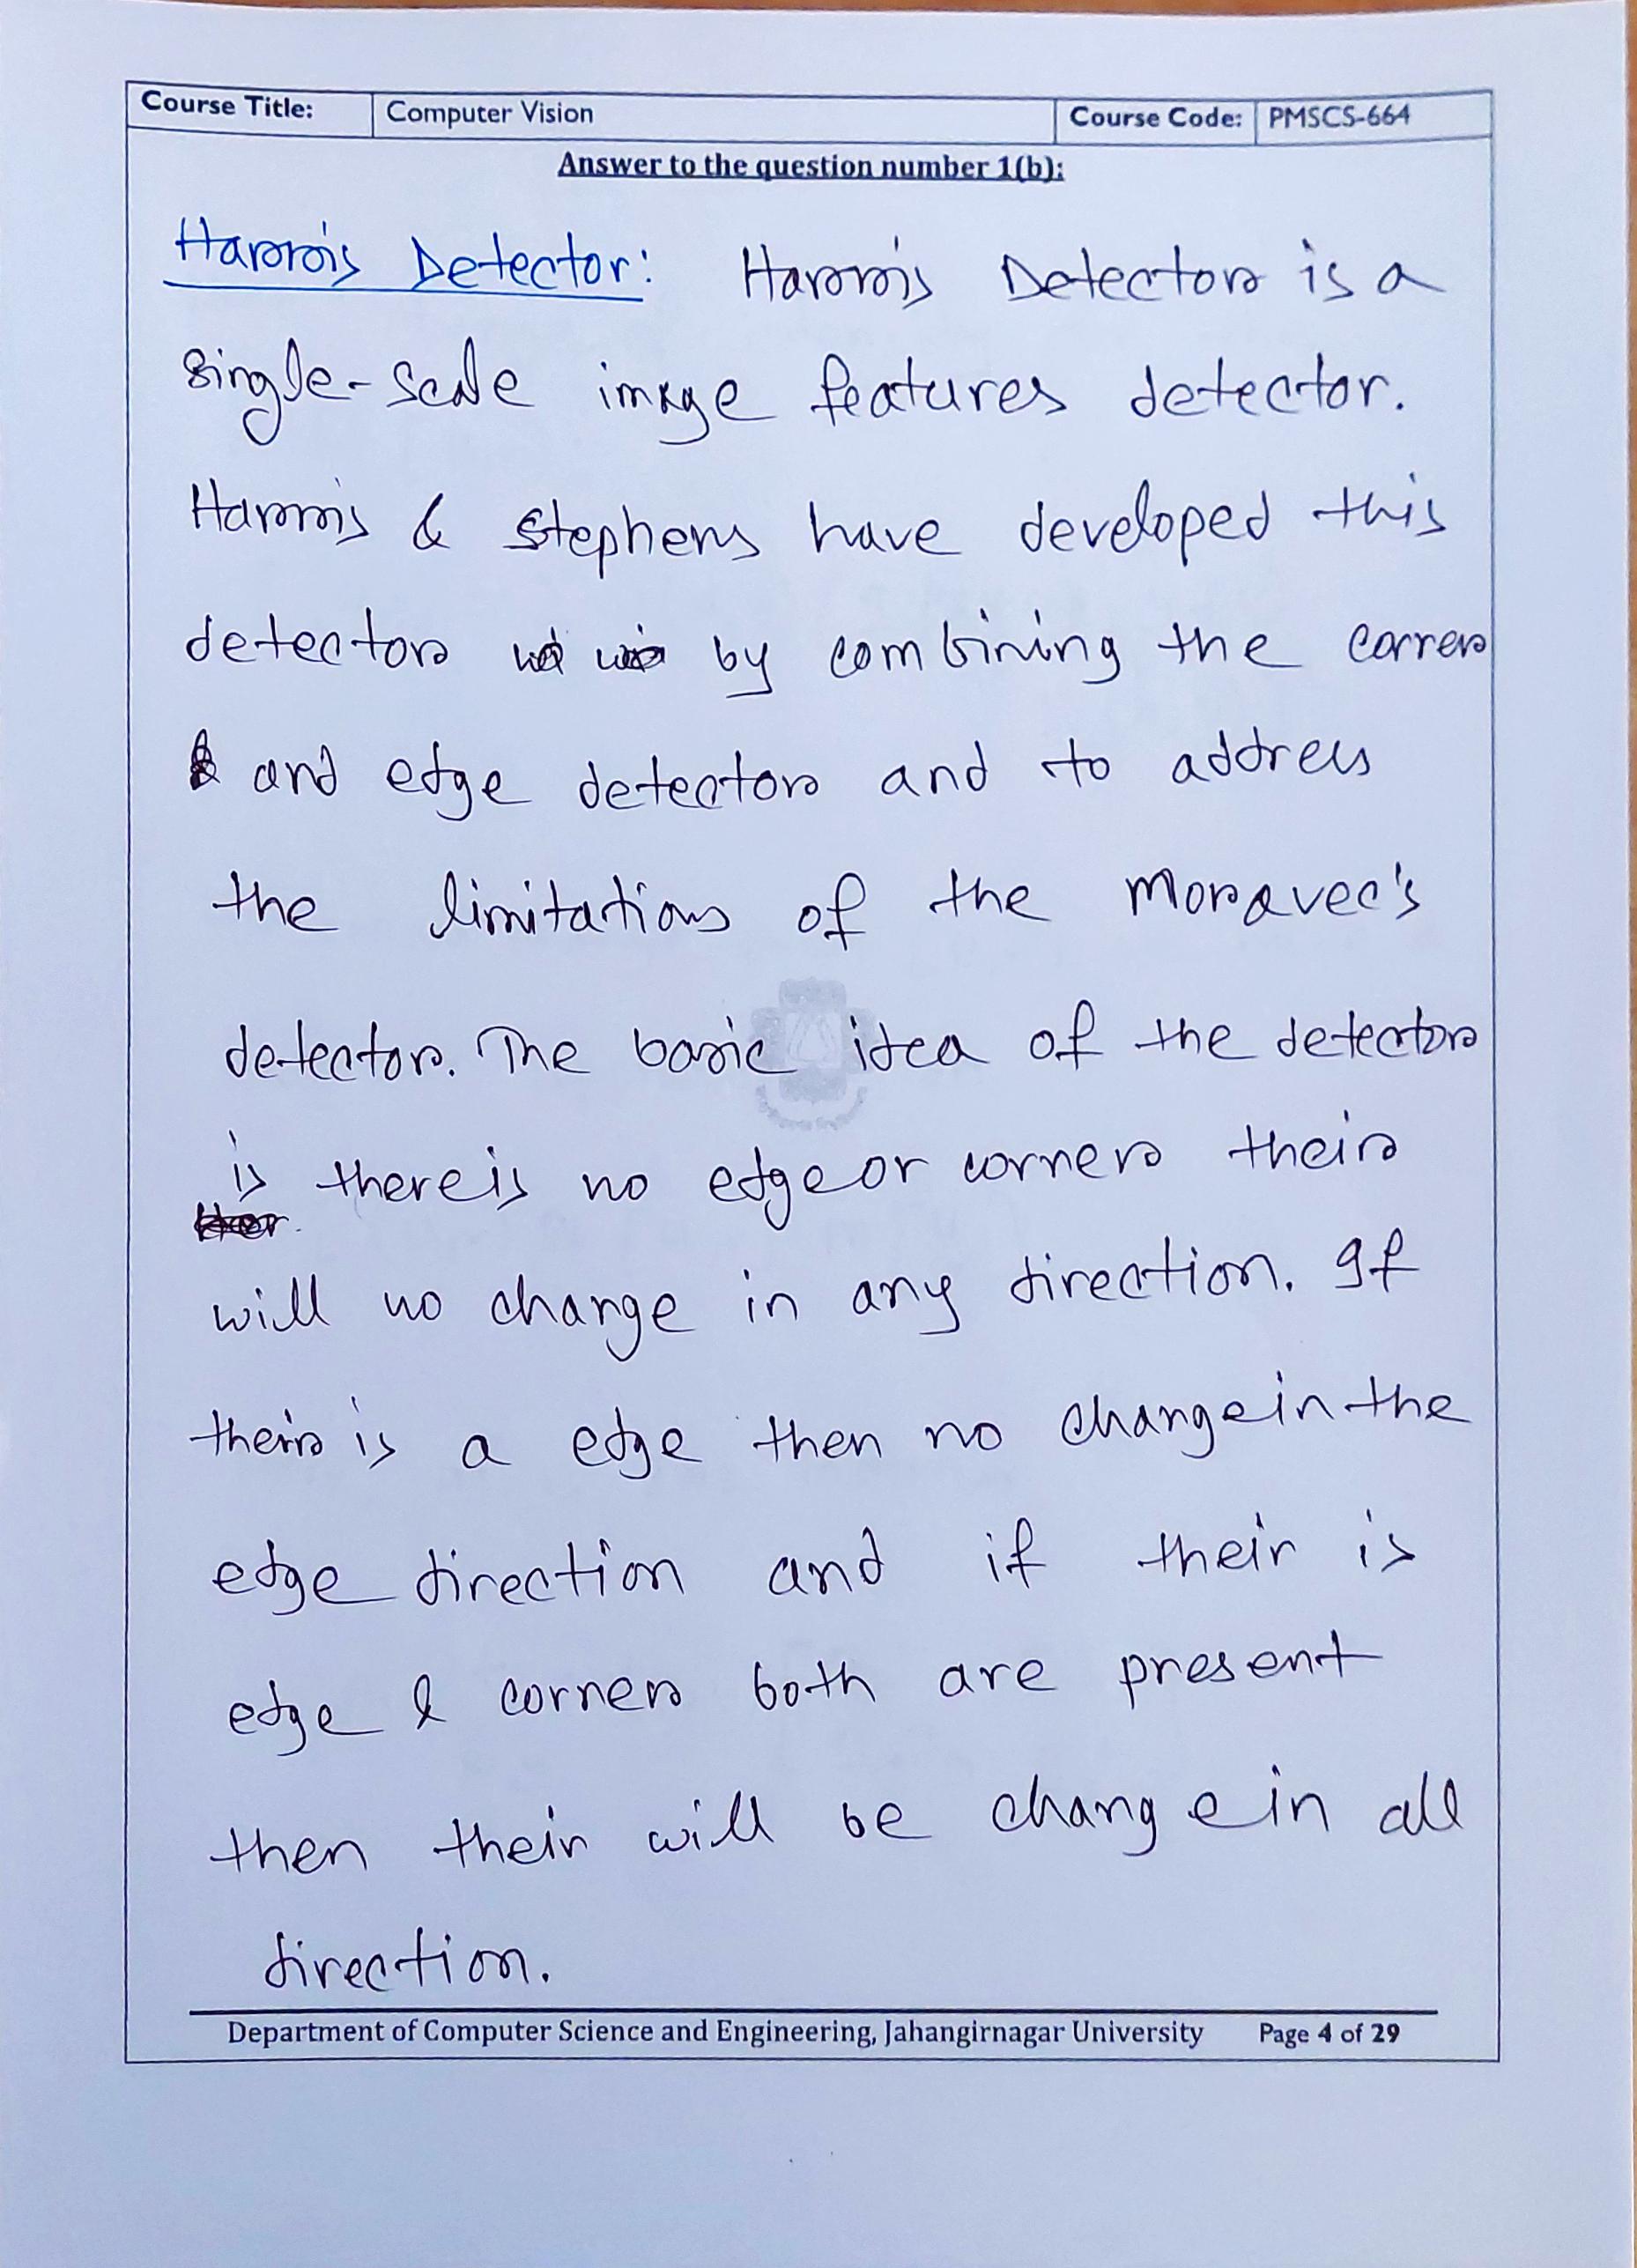 Course Title: Computer Vision Course Code: PMSCS-664
Answer to the question number 1(b):
Harris Detector: Harris Detector is a
single-scale image features detector.
Harris & Stephens have developed this
detector by combining the corner
and edge detector and to address
the limitations of the Moravec's
detector. The basic idea of the detector
is there is no edge or corner their
will no change in any direction. If
their is a edge then no change in the
edge direction and if their is
edge & corner both are present
then their will be change in all
direction.
Department of Computer Science and Engineering, Jahangirnagar University Page 4 of 29